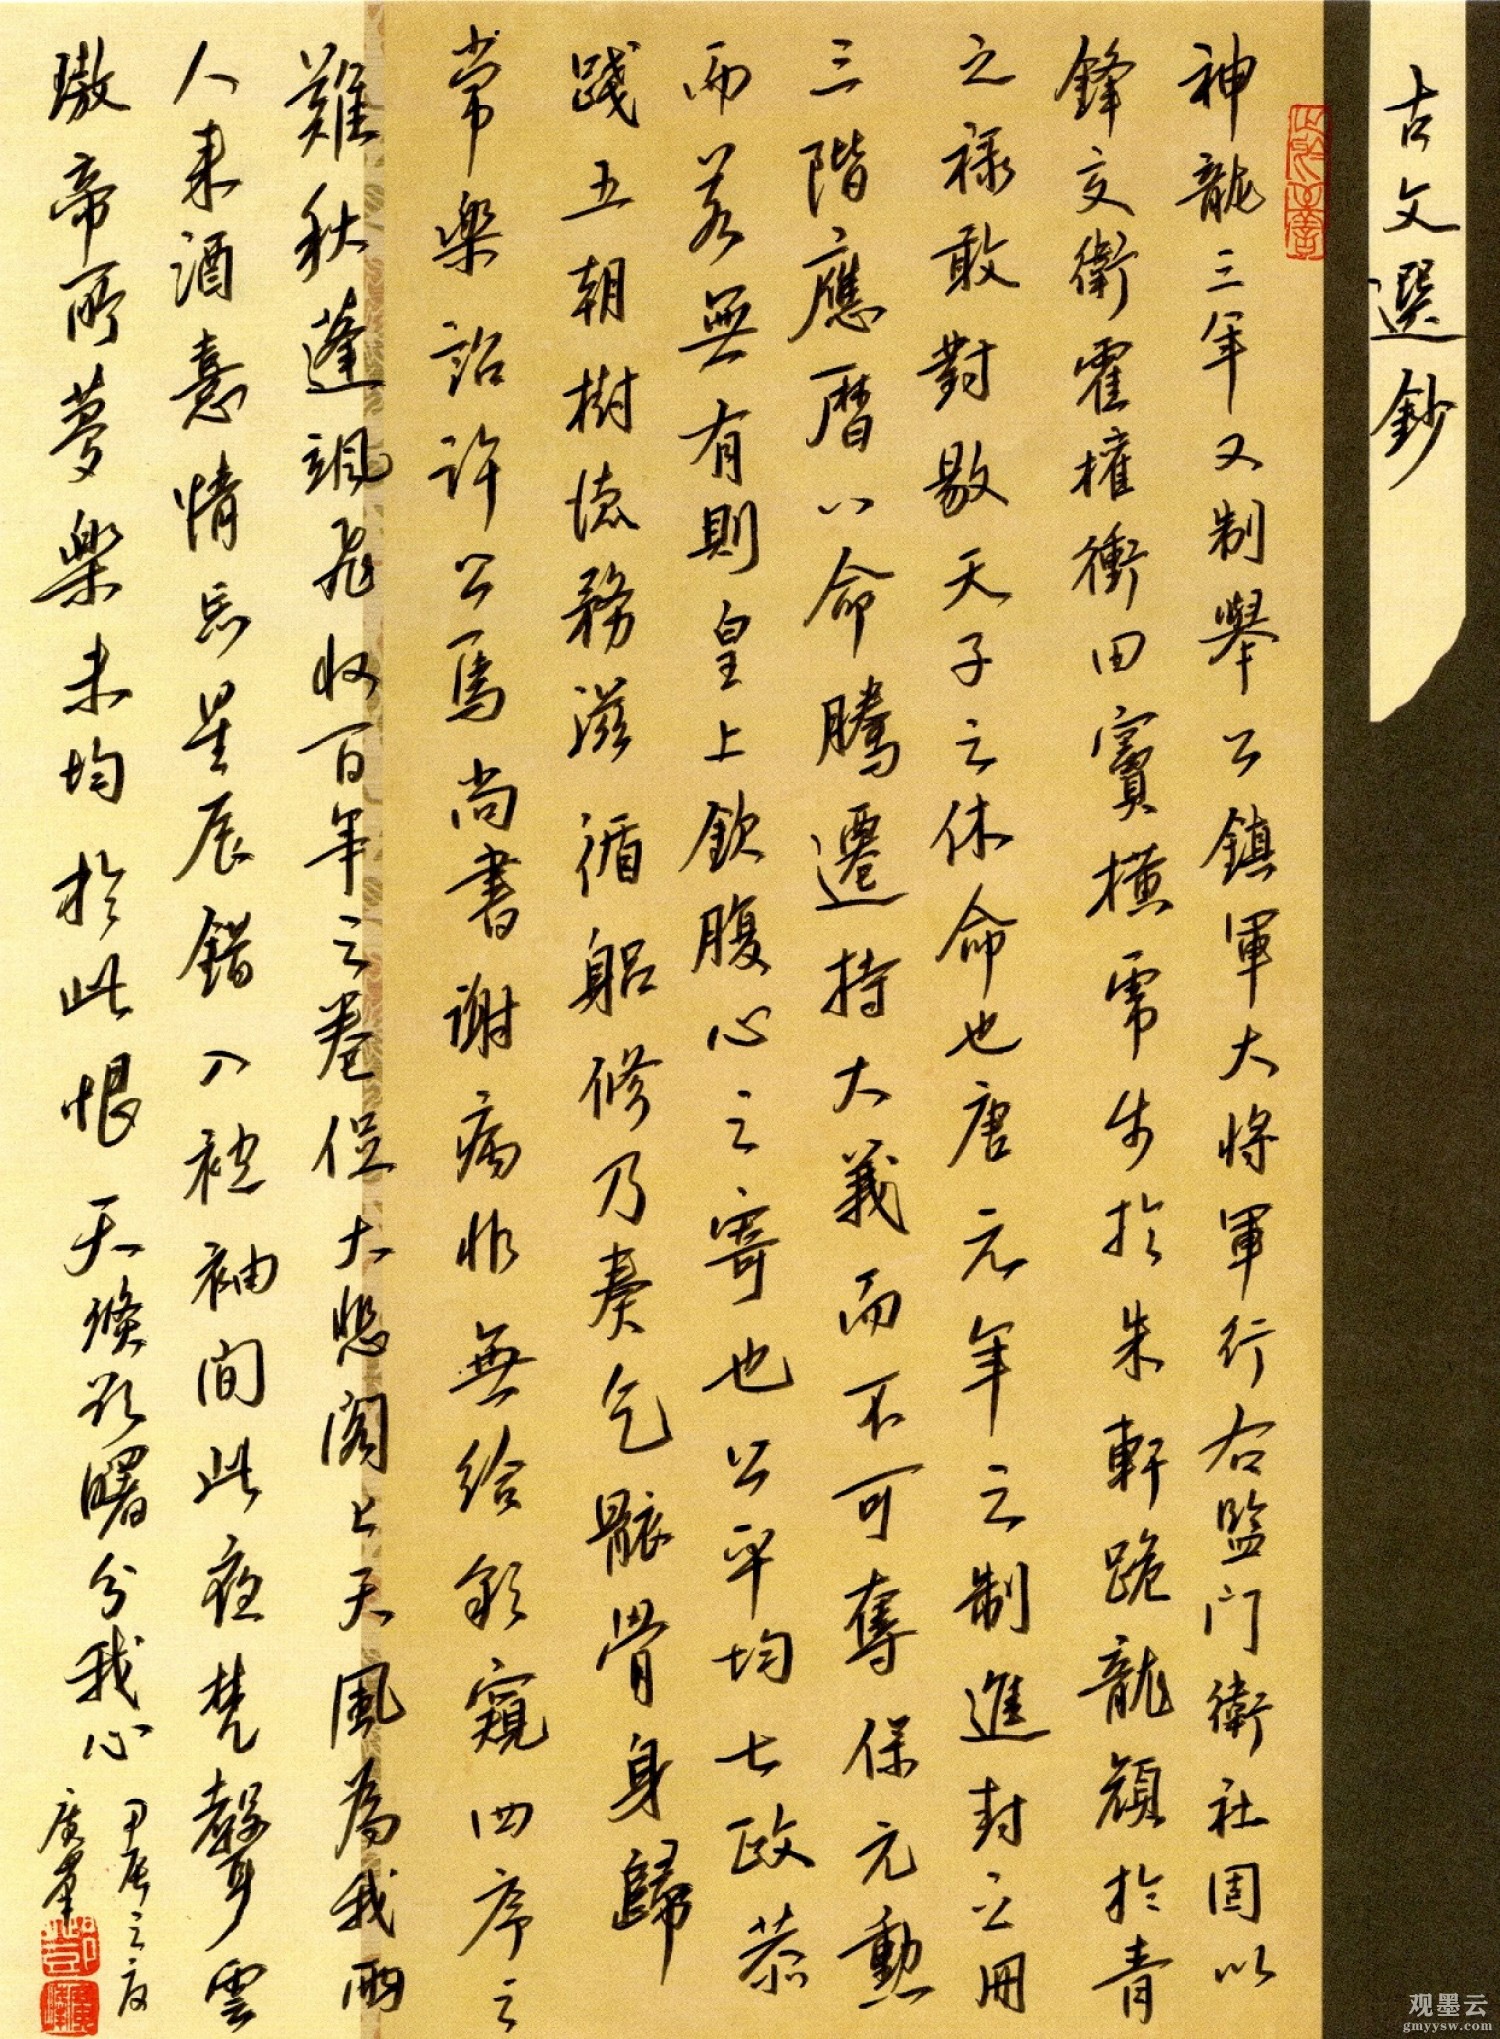 古文選鈔
神龍三年又制舉公鎮軍大將軍行右監門衛社固以
鋒交衛霍權衝田竇橫帶步於朱軒跪龍顏於青
之祿敢對敭天子之休命也唐元年之制進封之冊
三階應曆以命騰遷持大義而不可奪保元勳
而若無有則皇上欽腹心之寄也公平均七政恭
踐五朝樹德務滋循躬修乃奏乞骸骨身歸
常樂詔許公焉尚書謝病非無給 窺四序之
難秋蓬颯飛收百年之卷促大悲閣上天風為我雨
人來酒憙情忘星辰錯入 袖間此夜梵聲雲
璈帝所夢樂未均於此恨天 欲曙分我心
甲辰之夜
廣華
观墨云
gmyysw.com